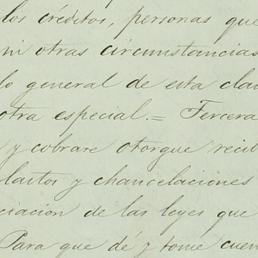 los créditos, personas que
ni otras circunstancias
lo general de esta clau
otra especial.= Tercera
y cobrare otorgue recib
lastos y chancelaciones
ciacion de las leyes que
Para que dé y tome cuen